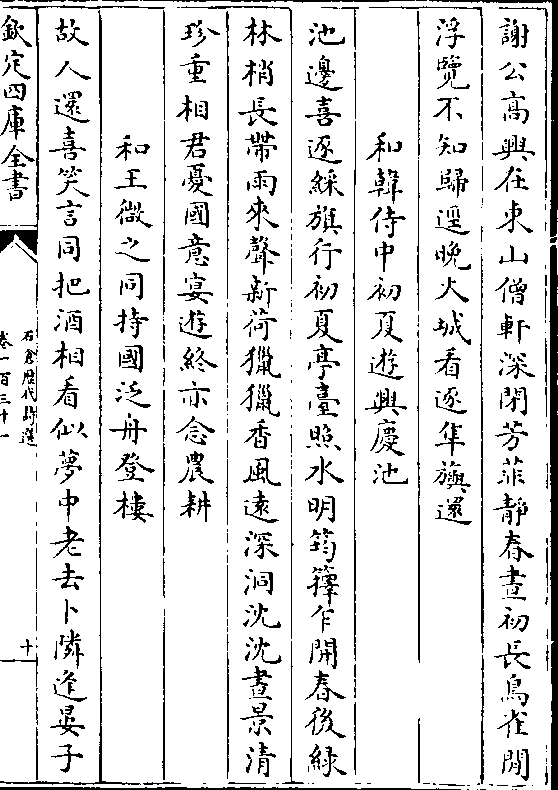 謝公高興在東山僧軒深閉芳菲靜春晝初長鳥雀閒
浮覽不知歸逕晚大城看逐隼旟還
和韓侍中初夏遊興慶池
池邊喜逐綵旗行初夏亭臺照水明筠籜乍開春後緑
林梢長帶雨來聲新荷獵獵香風遠深洞沈沈晝景清
珍重相君憂國意宴遊終亦念農耕
和王微之同持國泛舟登樓
故人還喜笑言同把酒相看似夢中老去卜隣逢晏子
欽定四庫全書
石倉歴代詩選
卷一百三十一
十